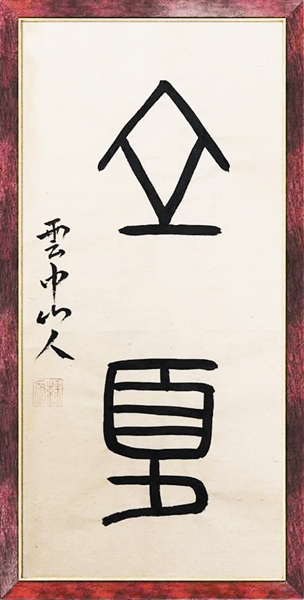 立夏
雲中山人